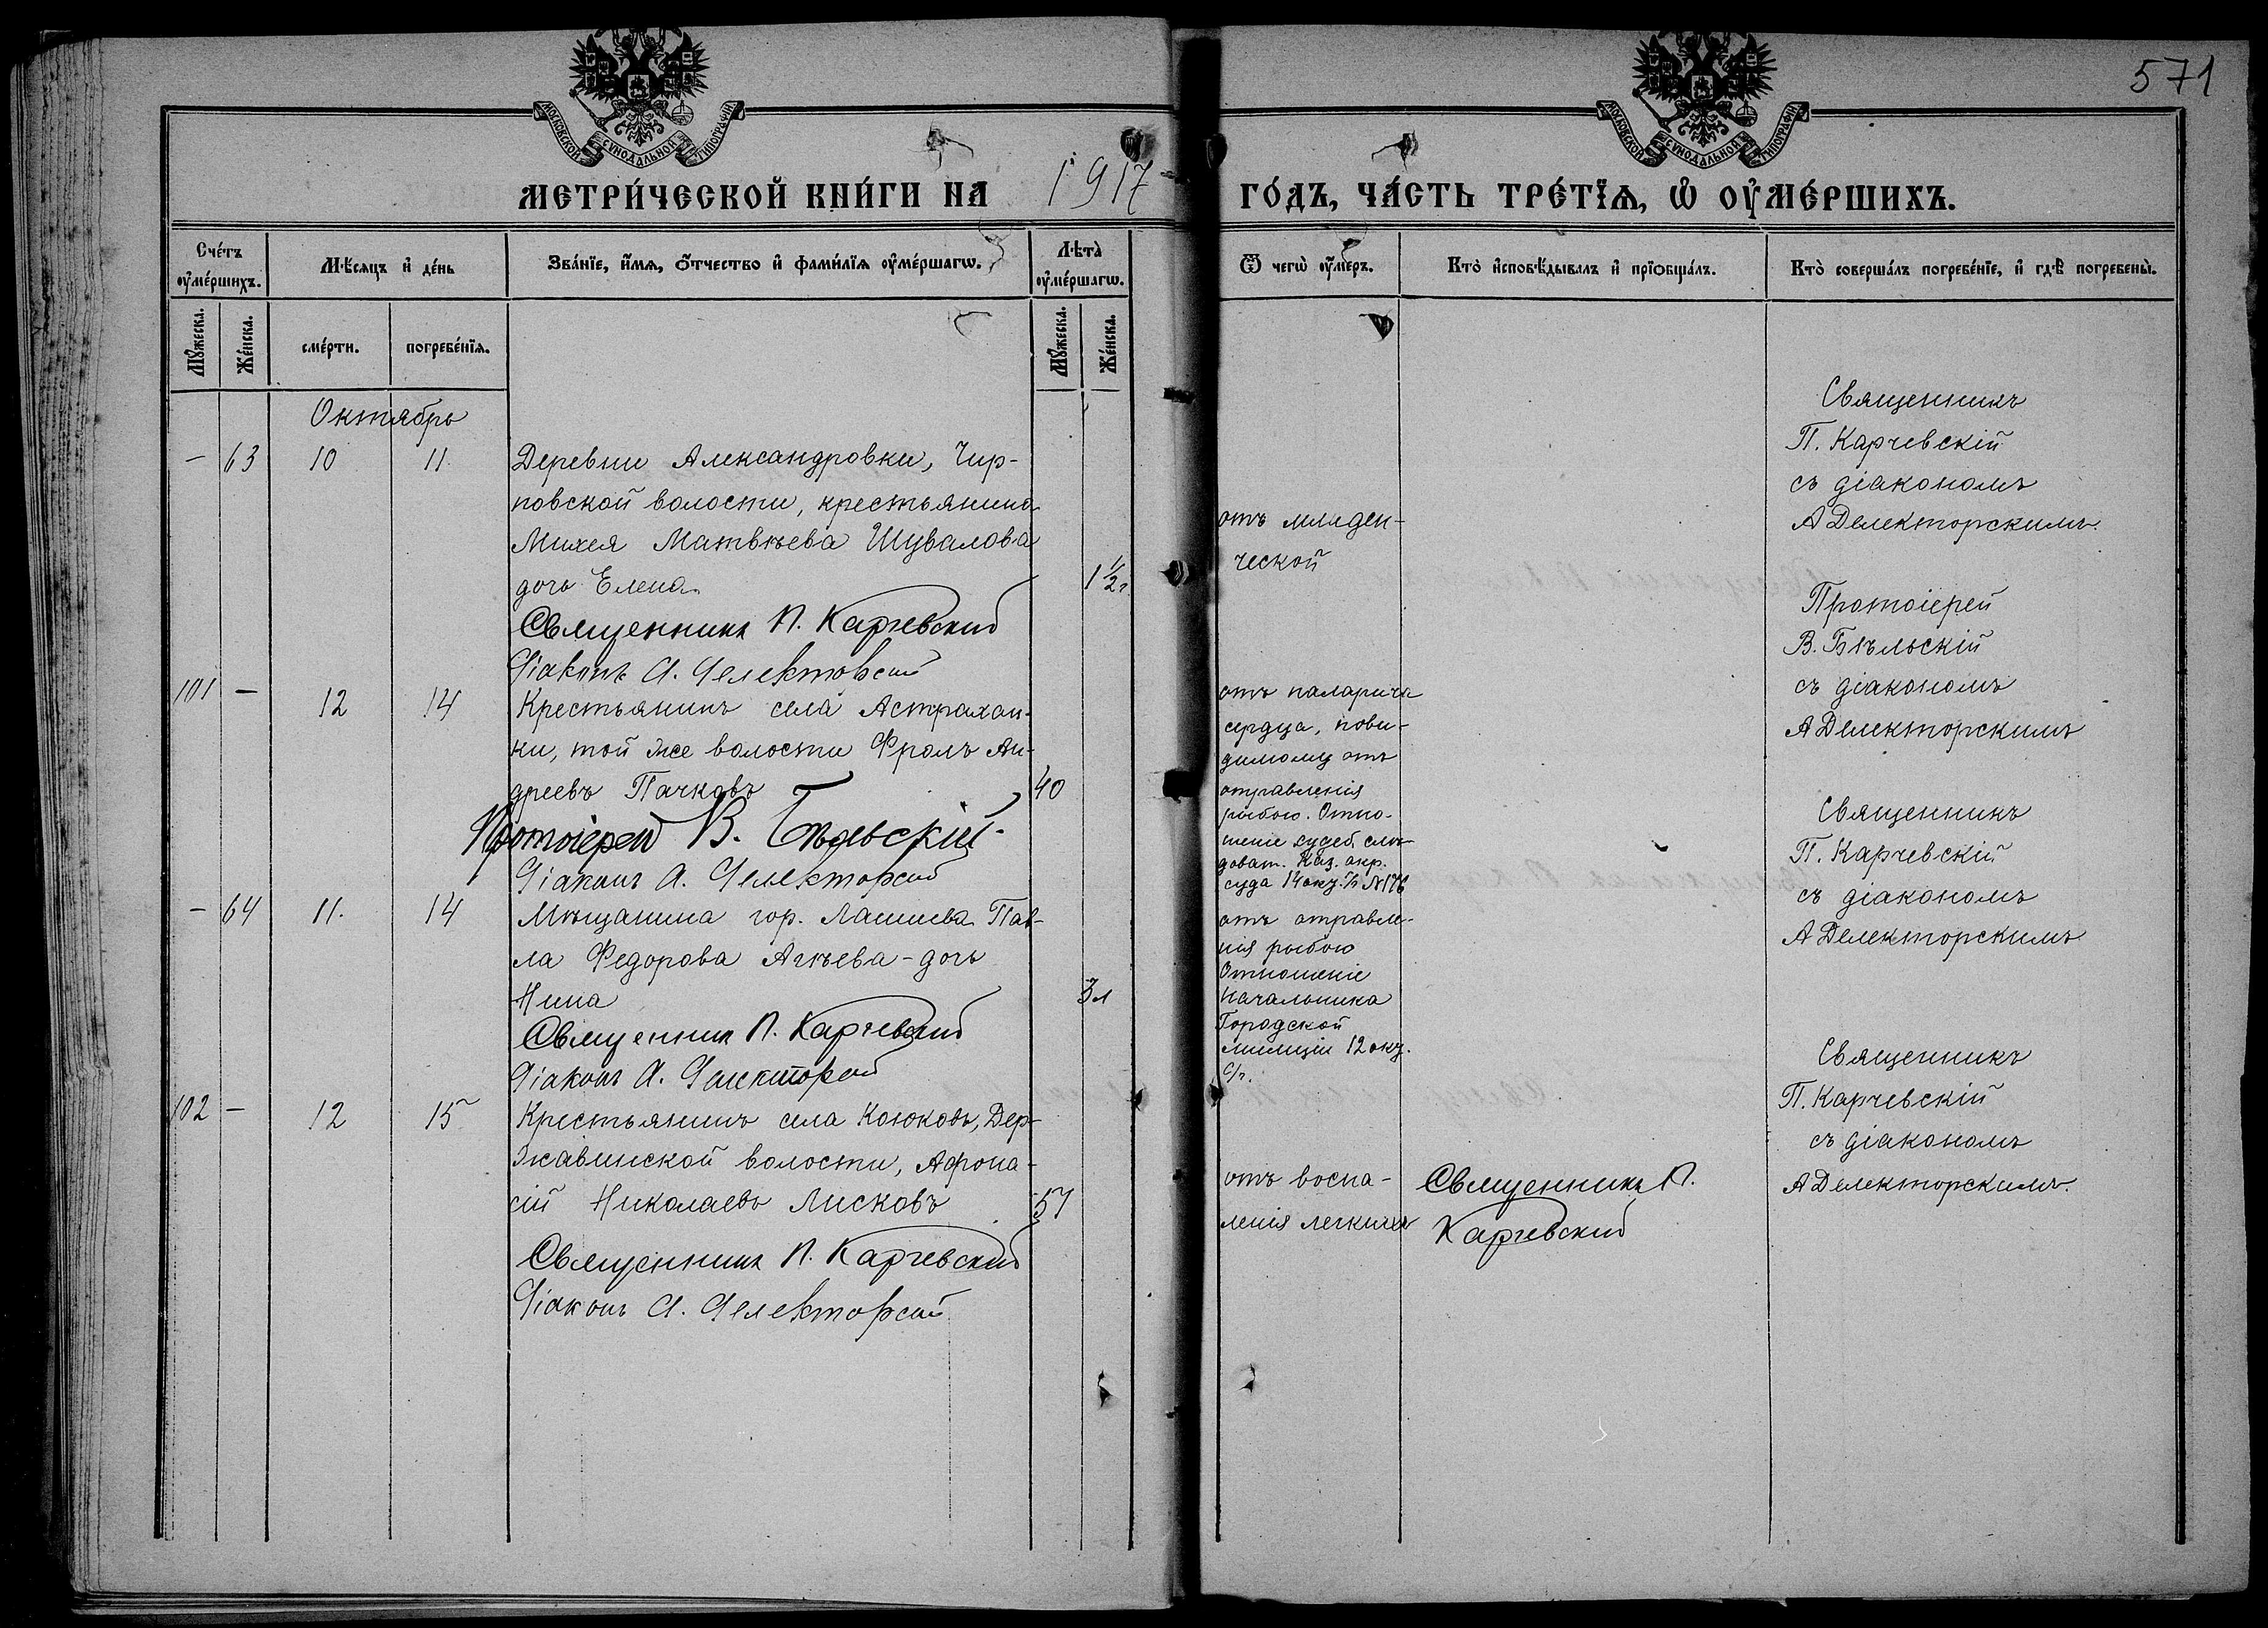 571
МОСКОВСКОЙ СѴНОДАЛЬНОЙ ТИПОГРАФІИ
МОСКОВСКОЙ СѴНОДАЛЬНОЙ ТИПОГРАФІИ
МЕТРИ́ЧЕСКОЙ КНИ́ГИ НА 1917 ГО́ДЪ, ЧА́СТЬ ТРЕ́ТЇѦ, Ѡ҆ ОУ҆МЕ́РШИХЪ.
Сче́тъ оу҆ме́ршихъ.
Мѣ́сяцъ и҆ де́нь
Зва́нїе, и҆́мѧ, ѻ҆́тчество и҆ фами́лїѧ оу҆ме́ршагѡ.
Лѣта̀ оу҆ме́ршагѡ.
Ѿ чегѡ̀ оу҆́меръ.
Кто̀ и҆сповѣ́дывалъ и҆ прїѡбща́лъ.
Кто̀ соверша́лъ погребе́нїе, и҆ гдѣ̀ погребены̀.
Мꙋ́жеска.
Же́нска.
сме́рти.
погребе́нїѧ.
Мꙋ́жеска.
Же́нска.
Октябрь
— 63 10 11.
Деревни Александровки, Чир-
повской волости, крестьянина
Михея Матвѣева Шувалова
дочь Елена.
1½ г
Священникъ П. Карчевский
Діаконъ А. Делекторский
отъ младен-
ческой
Священникъ
П. Карчевскій
съ діакономъ
А Делекторскимъ.
101 — 12 14
Крестьянинъ села Астрахан-
ки, той же волости Фролъ Ан-
дреевъ Пачковъ
40
Протоіерей В. Бѣльскій
Діаконъ А. Делекторский
отъ паралича
сердца, пови-
димому отъ
отравленія
рыбою. Отно-
шеніе судеб. слѣ-
доват. Каз. окр.
суда 14 окт. №176
Протоіерей
В. Бѣльскій
съ діакономъ
А Делекторскимъ
— 64 11. 14
Мѣщанина гор. Лаишева Пав-
ла Федорова Агѣева - дочь
Нина
3 л
Священникъ П. Карчевский
Діаконъ А. Делекторский
отъ отравле-
нія рыбою
Отношеніе
начальника
Городской
милиціи 12 окт.
с/г.
Священникъ
П. Карчевскій
съ діакономъ
А Делекторскимъ
102 — 12 15
Крестьянинъ села Коюковъ, Дер-
жавинской волости, Афона-
сій Николаевъ Лисковъ
57
Священникъ П. Карчевский
Діаконъ А. Делекторский
отъ воспа-
ленія легкихъ
Священникъ П.
Карчевский
Священникъ
П. Карчевскій
съ діакономъ
А Делекторскимъ.